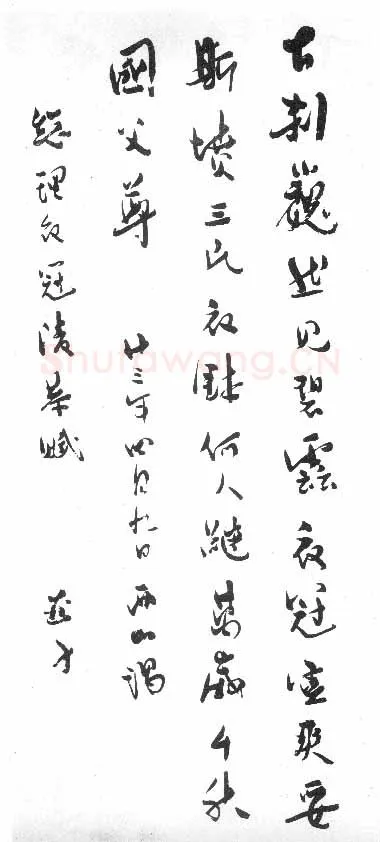 古刹巍然見碧雲衣冠靈爽妥
斯墳三民衣鉢何人繼萬歲千秋
國父尊 廿三年四月九日西山謁
總理衣冠陵恭賦
Shufawang.CN